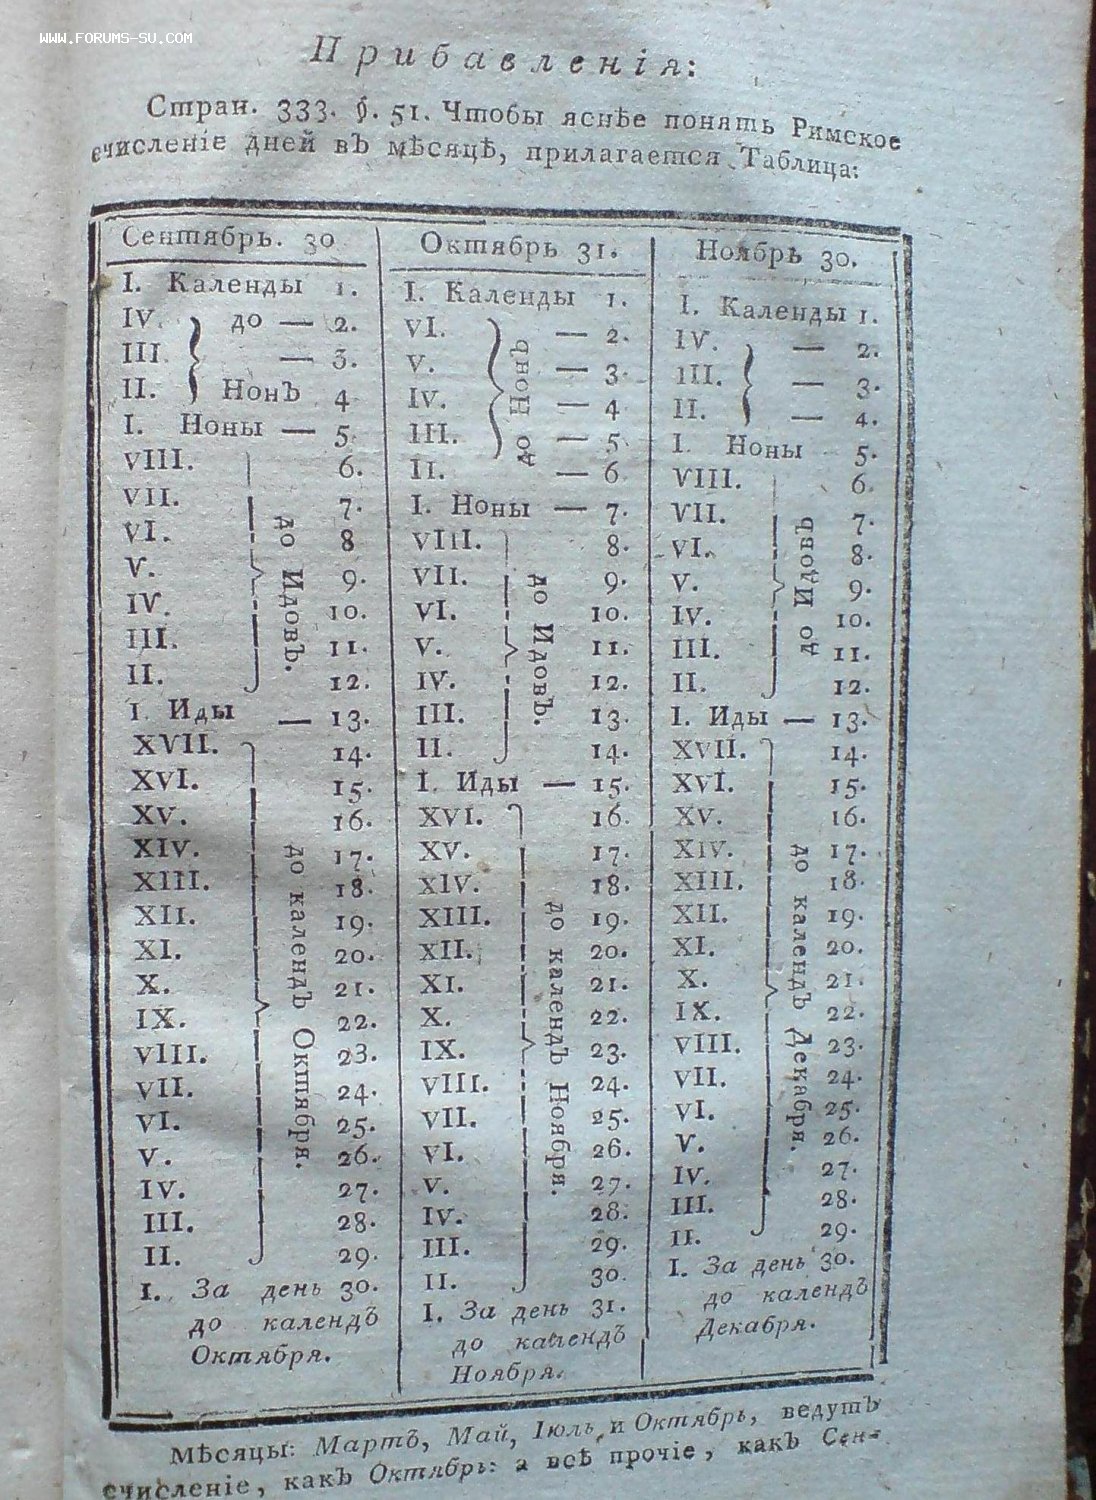 WWW.FORUMS-SU.COM
Прибавленія:
Стран. 333. §. 51. Чтобы яснѣе понять Римское
счисленіе дней въ мѣсяцѣ, прилагается Таблица:
Сентябрь. 30
I. Календы 1.
IV. до — 2.
III. — 3.
II. Нонъ 4
I. Ноны — 5.
VIII. 6.
VII. 7.
VI. 8
V. 9.
IV. 10.
III. 11.
II. 12.
до Идовъ.
I. Иды — 13.
XVII. 14.
XVI. 15.
XV. 16.
XIV. 17.
XIII. 18.
XII. 19.
XI. 20.
X. 21.
IX. 22.
VIII. 23.
VII. 24.
VI. 25.
V. 26.
IV. 27.
III. 28.
II. 29.
до календъ Октября.
I. За день 30.
до календъ
Октября.
Октябрь 31.
I. Календы 1.
VI. — 2.
V. — 3.
IV. — 4
III. — 5
II. — 6
до Нонъ
I. Ноны — 7.
VIII. 8.
VII. 9.
VI. 10.
V. 11.
IV. 12.
III. 13.
II. 14.
до Идовъ.
I. Иды — 15.
XVI. 16.
XV. 17.
XIV. 18.
XIII. 19.
XII. 20.
XI. 21.
X. 22.
IX. 23.
VIII. 24.
VII. 25.
VI. 26.
V. 27.
IV. 28.
III. 29.
II. 30.
до календъ Ноября.
I. За день 31.
до календъ
Ноября.
Ноябрь 30.
I. Календы 1.
IV. — 2.
III. — 3.
II. — 4.
I. Ноны 5.
VIII. 6.
VII. 7.
VI. 8.
V. 9.
IV. 10.
III. 11.
II. 12.
до Идовъ
I. Иды — 13.
XVII. 14.
XVI. 15.
XV. 16.
XIV. 17.
XIII. 18.
XII. 19.
XI. 20.
X. 21.
IX. 22.
VIII. 23.
VII. 24.
VI. 25.
V. 26.
IV. 27.
III. 28.
II. 29.
до календъ Декабря.
I. За день 30.
до календъ
Декабря.
Мѣсяцы: Мартъ, Май, Іюль и Октябрь, ведутъ
счисленіе, какъ Октябрь: а всѣ прочіе, какъ Сен-